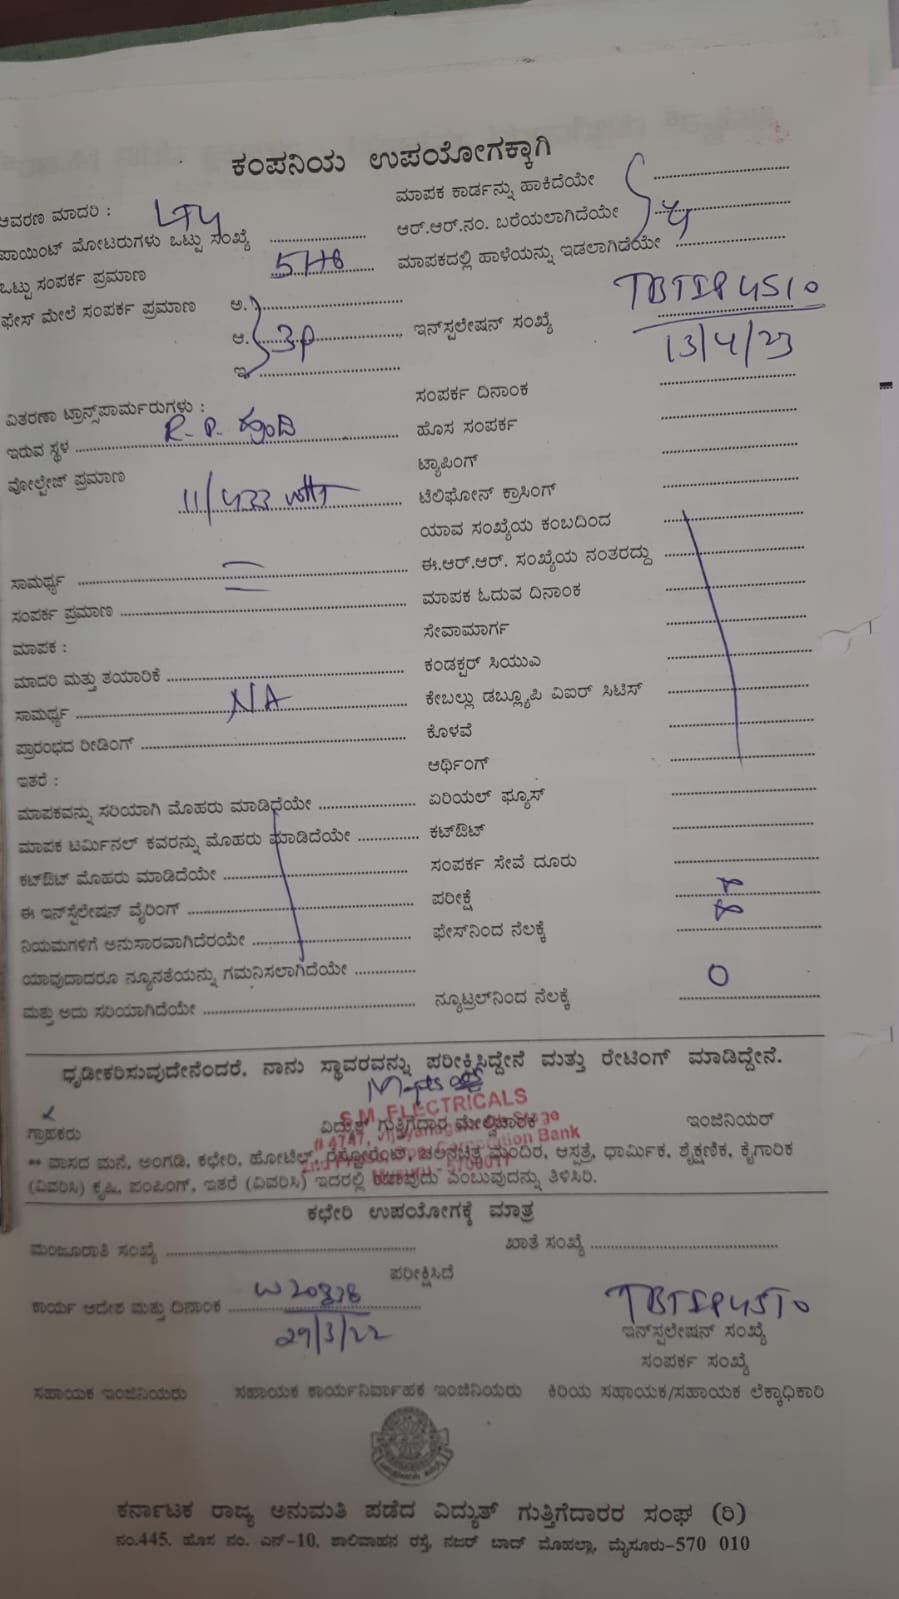 ಕಂಪನಿಯ ಉಪಯೋಗಕ್ಕಾಗಿ
ಆವರಣ ಮಾದರಿ : LT4 ಮಾಪಕ ಕಾರ್ಡನ್ನು ಹಾಕಿದೆಯೇ
ಪಾಯಿಂಟ್ ಮೋಟರುಗಳು ಒಟ್ಟು ಸಂಖ್ಯೆ ಆರ್.ಆರ್.ನಂ. ಬರೆಯಲಾಗಿದೆಯೇ
ಒಟ್ಟು ಸಂಪರ್ಕ ಪ್ರಮಾಣ 5HP ಮಾಪಕದಲ್ಲಿ ಹಾಳೆಯನ್ನು ಇಡಲಾಗಿದೆಯೇ
ಫೇಸ್ ಮೇಲೆ ಸಂಪರ್ಕ ಪ್ರಮಾಣ ಅ. TBTIP4510
ಆ. 3P ಇನ್‌ಸ್ಪಲೇಷನ್ ಸಂಖ್ಯೆ 13/4/23
ಇ.
ಸಂಪರ್ಕ ದಿನಾಂಕ
ವಿತರಣಾ ಟ್ರಾನ್ಸ್‌ಪಾರ್ಮರುಗಳು : ಹೊಸ ಸಂಪರ್ಕ
ಇರುವ ಸ್ಥಳ R.P. ಟ್ಯಾಪಿಂಗ್
ವೋಲ್ಟೇಜ್ ಪ್ರಮಾಣ 11/433 volt ಟೆಲಿಫೋನ್ ಕ್ರಾಸಿಂಗ್
ಯಾವ ಸಂಖ್ಯೆಯ ಕಂಬದಿಂದ
ಸಾಮರ್ಥ್ಯ ಈ.ಆರ್.ಆರ್. ಸಂಖ್ಯೆಯ ನಂತರದ್ದು
ಸಂಪರ್ಕ ಪ್ರಮಾಣ ಮಾಪಕ ಓದುವ ದಿನಾಂಕ
ಮಾಪಕ : ಸೇವಾಮಾರ್ಗ
ಮಾದರಿ ಮತ್ತು ತಯಾರಿಕೆ ಕಂಡಕ್ಟರ್ ಸಿಯುಎ
ಸಾಮರ್ಥ್ಯ NA ಕೇಬಲ್ಲು ಡಬ್ಲ್ಯೂಪಿ ವಿಐರ್ ಸಿಟಿಸ್
ಪ್ರಾರಂಭದ ರೀಡಿಂಗ್ ಕೊಳವೆ
ಇತರೆ : ಆರ್ಥಿಂಗ್
ಮಾಪಕವನ್ನು ಸರಿಯಾಗಿ ಮೊಹರು ಮಾಡಿದೆಯೇ ಏರಿಯಲ್ ಫ್ಯೂಸ್
ಮಾಪಕ ಟರ್ಮಿನಲ್ ಕವರನ್ನು ಮೊಹರು ಮಾಡಿದೆಯೇ ಕಟ್‌ಔಟ್
ಕಟ್‌ಔಟ್ ಮೊಹರು ಮಾಡಿದೆಯೇ ಸಂಪರ್ಕ ಸೇವೆ ದೂರು
ಈ ಇನ್‌ಸ್ಟೆಲೇಷನ್ ವೈರಿಂಗ್ ಪರೀಕ್ಷೆ
ನಿಯಮಗಳಿಗೆ ಅನುಸಾರವಾಗಿದೆರಯೇ ಫೇಸ್‌ನಿಂದ ನೆಲಕ್ಕೆ
ಯಾವುದಾದರೂ ನ್ಯೂನತೆಯನ್ನು ಗಮನಿಸಲಾಗಿದೆಯೇ
ಮತ್ತು ಅದು ಸರಿಯಾಗಿದೆಯೇ ನ್ಯೂಟ್ರಲ್‌ನಿಂದ ನೆಲಕ್ಕೆ 0
ಧೃಢೀಕರಿಸುವುದೇನೆಂದರೆ, ನಾನು ಸ್ಥಾವರವನ್ನು ಪರೀಕ್ಷಿಸಿದ್ದೇನೆ ಮತ್ತು ರೇಟಿಂಗ್ ಮಾಡಿದ್ದೇನೆ.
S.M. ELECTRICALS
ಗ್ರಾಹಕರು ವಿದ್ಯುತ್ ಗುತ್ತಿಗೆದಾರ ಮೇಲ್ವಿಚಾರಕ ಇಂಜಿನಿಯರ್
# 4747, Corporation Bank
** ವಾಸದ ಮನೆ, ಅಂಗಡಿ, ಕಛೇರಿ, ಹೋಟೆಲ್, ರೆಸ್ಟೋರೆಂಟ್, ಚಲನಚಿತ್ರ ಮಂದಿರ, ಆಸ್ಪತ್ರೆ, ಧಾರ್ಮಿಕ, ಶೈಕ್ಷಣಿಕ, ಕೈಗಾರಿಕ
(ವಿವರಿಸಿ) ಕೃಷಿ, ಪಂಪಿಂಗ್, ಇತರೆ (ವಿವರಿಸಿ) ಇದರಲ್ಲಿ ಯಾವುದು ಎಂಬುವುದನ್ನು ತಿಳಿಸಿರಿ.
ಕಛೇರಿ ಉಪಯೋಗಕ್ಕೆ ಮಾತ್ರ
ಮಂಜೂರಾತಿ ಸಂಖ್ಯೆ ಖಾತೆ ಸಂಖ್ಯೆ
ಪರೀಕ್ಷಿಸಿದೆ
ಕಾರ್ಯ ಆದೇಶ ಮತ್ತು ದಿನಾಂಕ TBTIP4510
29/3/22 ಇನ್‌ಸ್ಪಲೇಷನ್ ಸಂಖ್ಯೆ
ಸಂಪರ್ಕ ಸಂಖ್ಯೆ
ಸಹಾಯಕ ಇಂಜಿನಿಯರು ಸಹಾಯಕ ಕಾರ್ಯನಿರ್ವಾಹಕ ಇಂಜಿನಿಯರು ಕಿರಿಯ ಸಹಾಯಕ/ಸಹಾಯಕ ಲೆಕ್ಕಾಧಿಕಾರಿ
ಕರ್ನಾಟಕ ರಾಜ್ಯ ಅನುಮತಿ ಪಡೆದ ವಿದ್ಯುತ್ ಗುತ್ತಿಗೆದಾರರ ಸಂಘ (ರಿ)
ನಂ.445, ಹೊಸ ನಂ. ಎನ್-10, ಶಾಲಿವಾಹನ ರಸ್ತೆ, ನಜರ್ ಬಾದ್ ಮೊಹಲ್ಲಾ, ಮೈಸೂರು-570 010